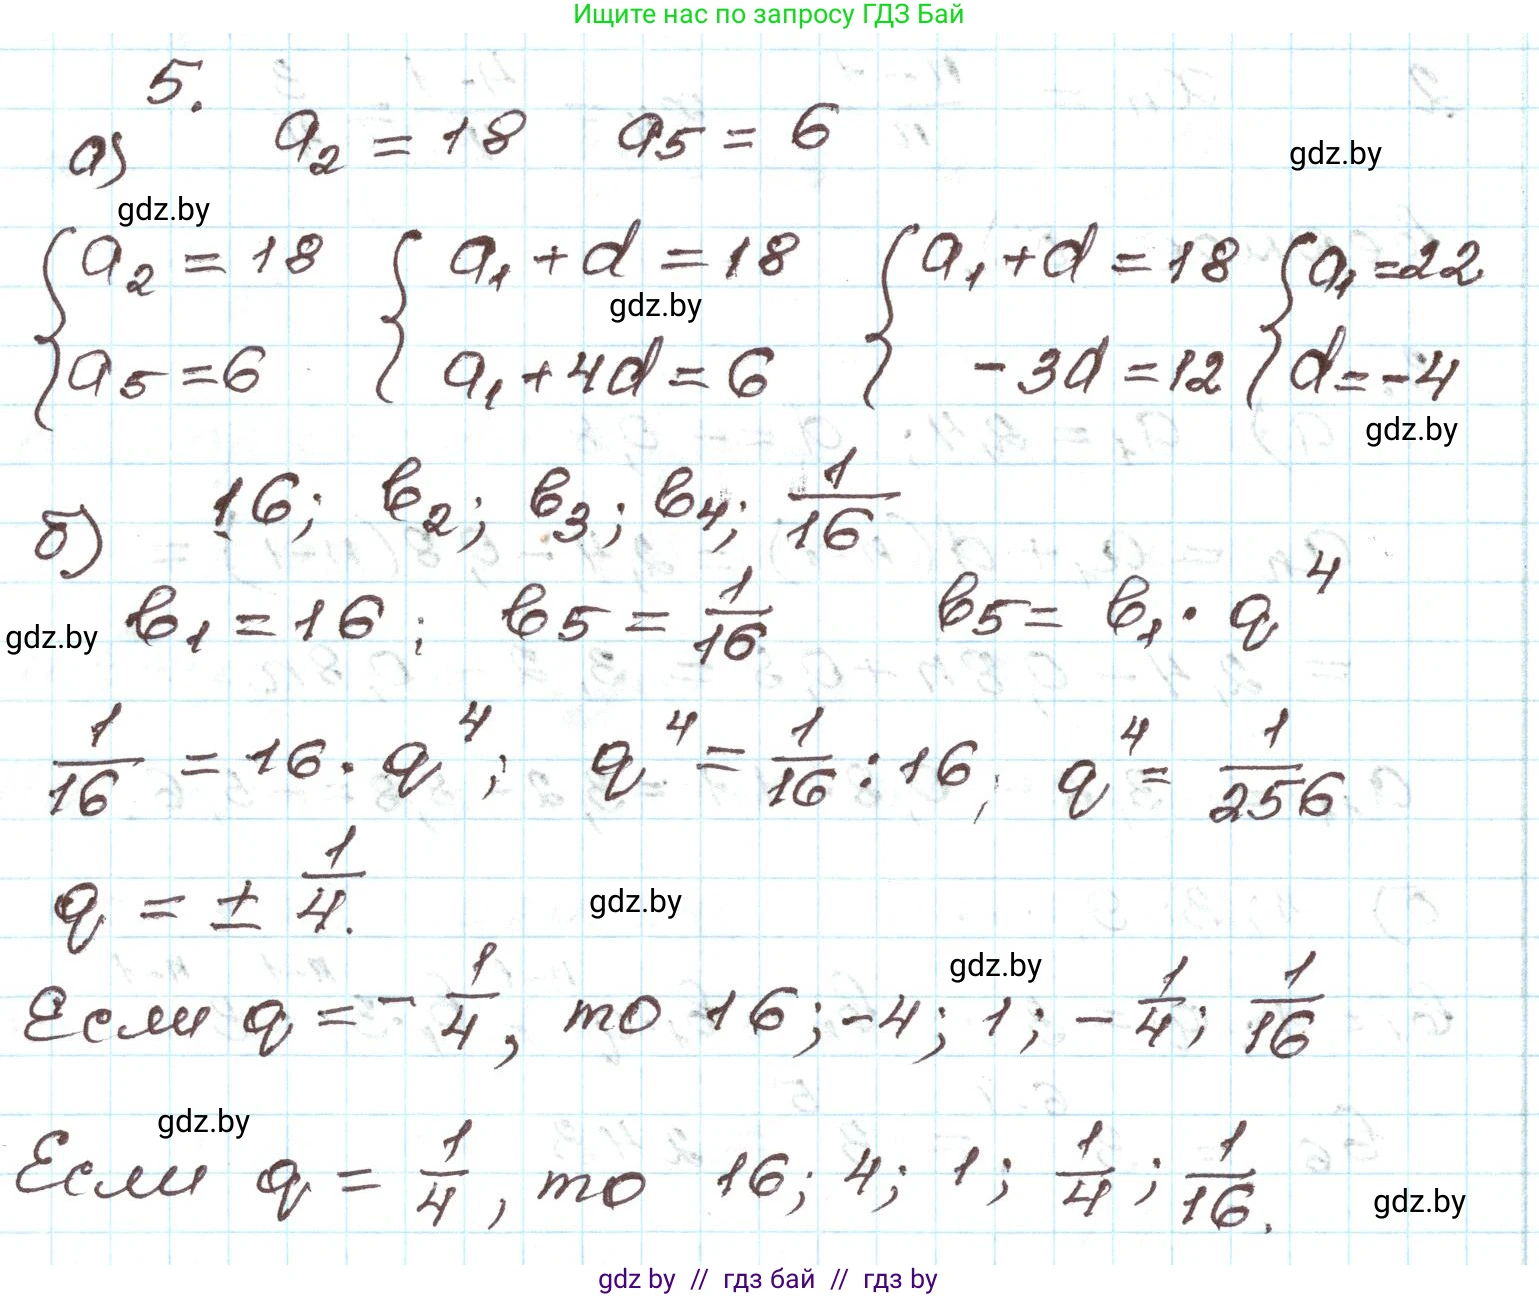 Ищите нас по запросу ГДЗ Бай
5.
а) a₂ = 18 a₅ = 6
gdz.by
gdz.by
{ a₂ = 18 { a₁ + d = 18 { a₁ + d = 18 { a₁ = 22
gdz.by
a₅ = 6 a₁ + 4d = 6 - 3d = 12 d = -4
gdz.by
б) 16; b₂; b₃; b₄; 1/16
gdz.by b₁ = 16; b₅ = 1/16 b₅ = b₁ · q⁴
1/16 = 16 · q⁴; q⁴ = 1/16 : 16, q⁴ = 1/256
q = ± 1/4.
gdz.by
gdz.by
Если q = - 1/4, то 16; -4; 1; - 1/4; 1/16
gdz.by
Если q = 1/4, то 16; 4; 1; 1/4; 1/16.
gdz.by
gdz by // гдз бай // гдз by